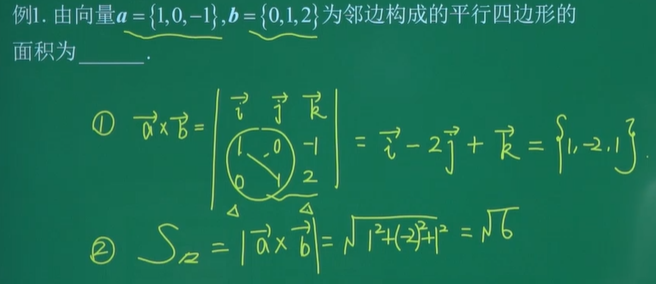 例1. 由向量a = {1,0,−1}, b = {0,1,2}为邻边构成的平行四边形的
面积为______.
① a⃗×b⃗ = | i⃗ j⃗ k⃗ ; 1 0 −1 ; 0 1 2 | = i⃗ − 2j⃗ + k⃗ = {1,−2,1}.
② S▱ = |a⃗×b⃗| = √(1²+(−2)²+1²) = √6